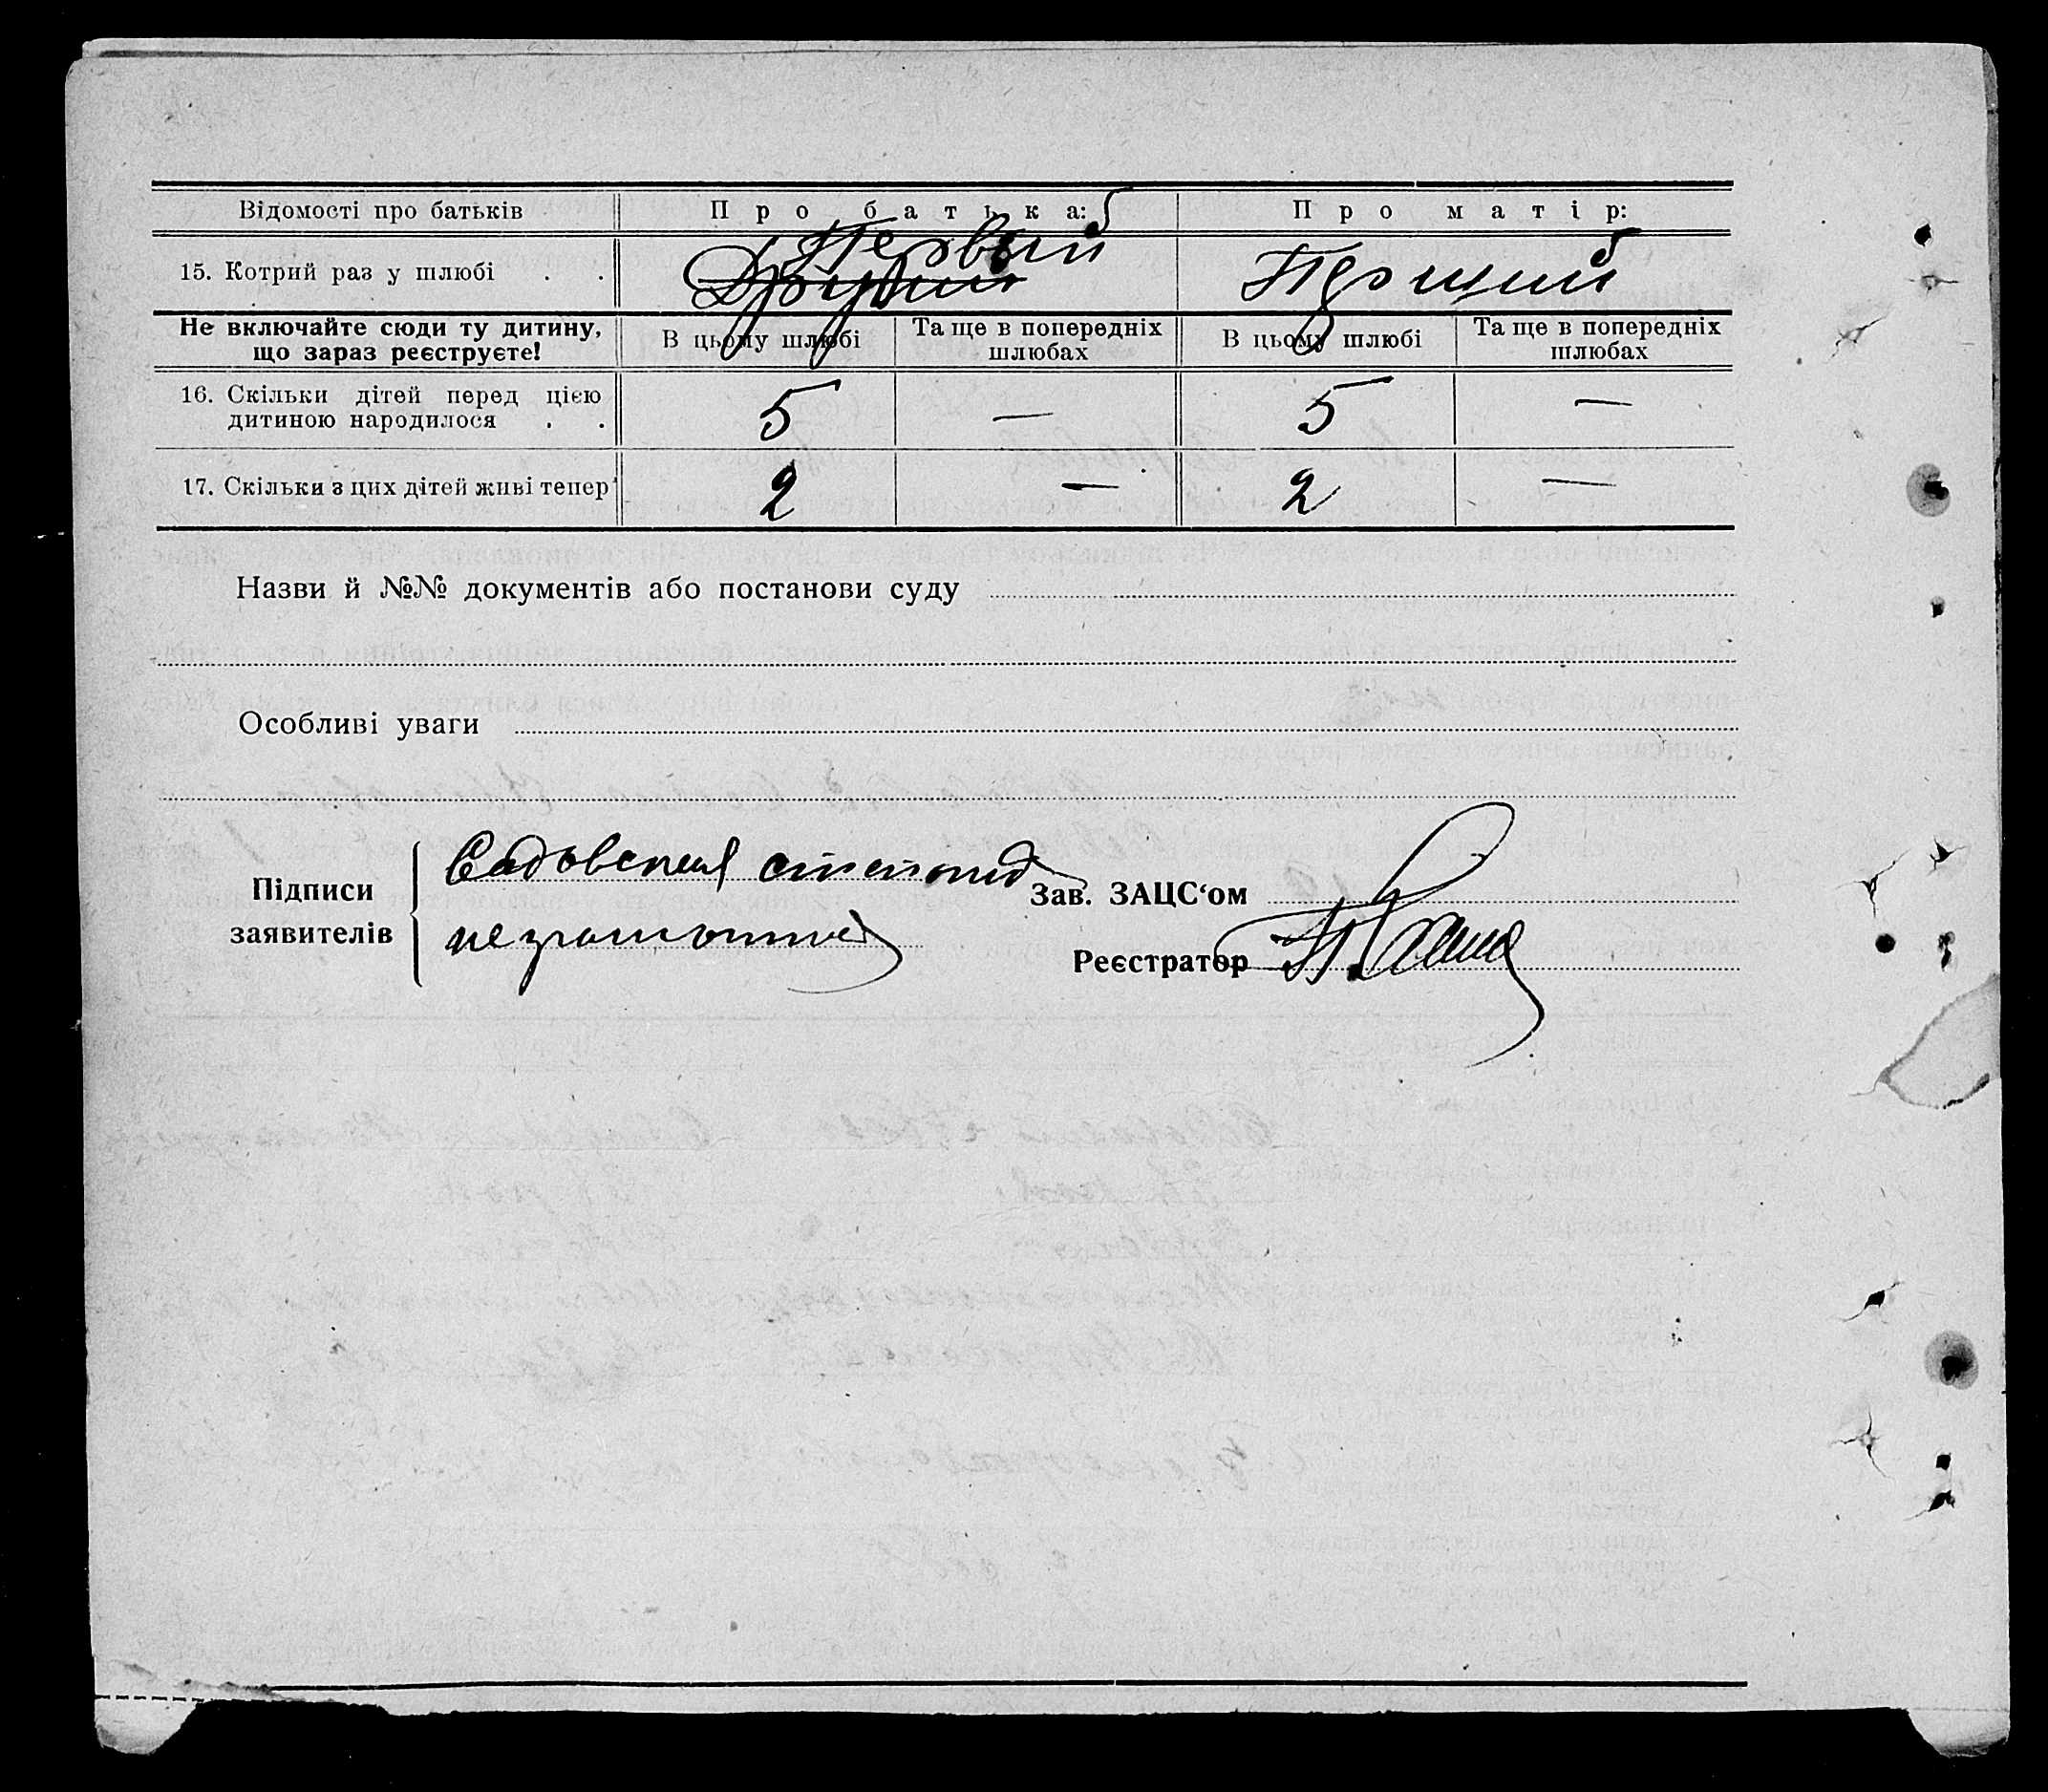 Відомості про батьків
Про батька:
Про матір:
15. Котрий раз у шлюбі . .
Первый
Другий
Перший
Не включайте сюди ту дитину,
що зараз реєструєте!
В цьому шлюбі
Та ще в попередніх
шлюбах
В цьому шлюбі
Та ще в попередніх
шлюбах
16. Скільки дітей перед цією
дитиною народилося . .
5
—
5
—
17. Скільки з цих дітей живі тепер
2
—
2
—
Назви й №№ документів або постанови суду
Особливі уваги
Підписи
заявителів
Садовская
неграмотна
Зав. ЗАЦС‘ом
Реєстратор